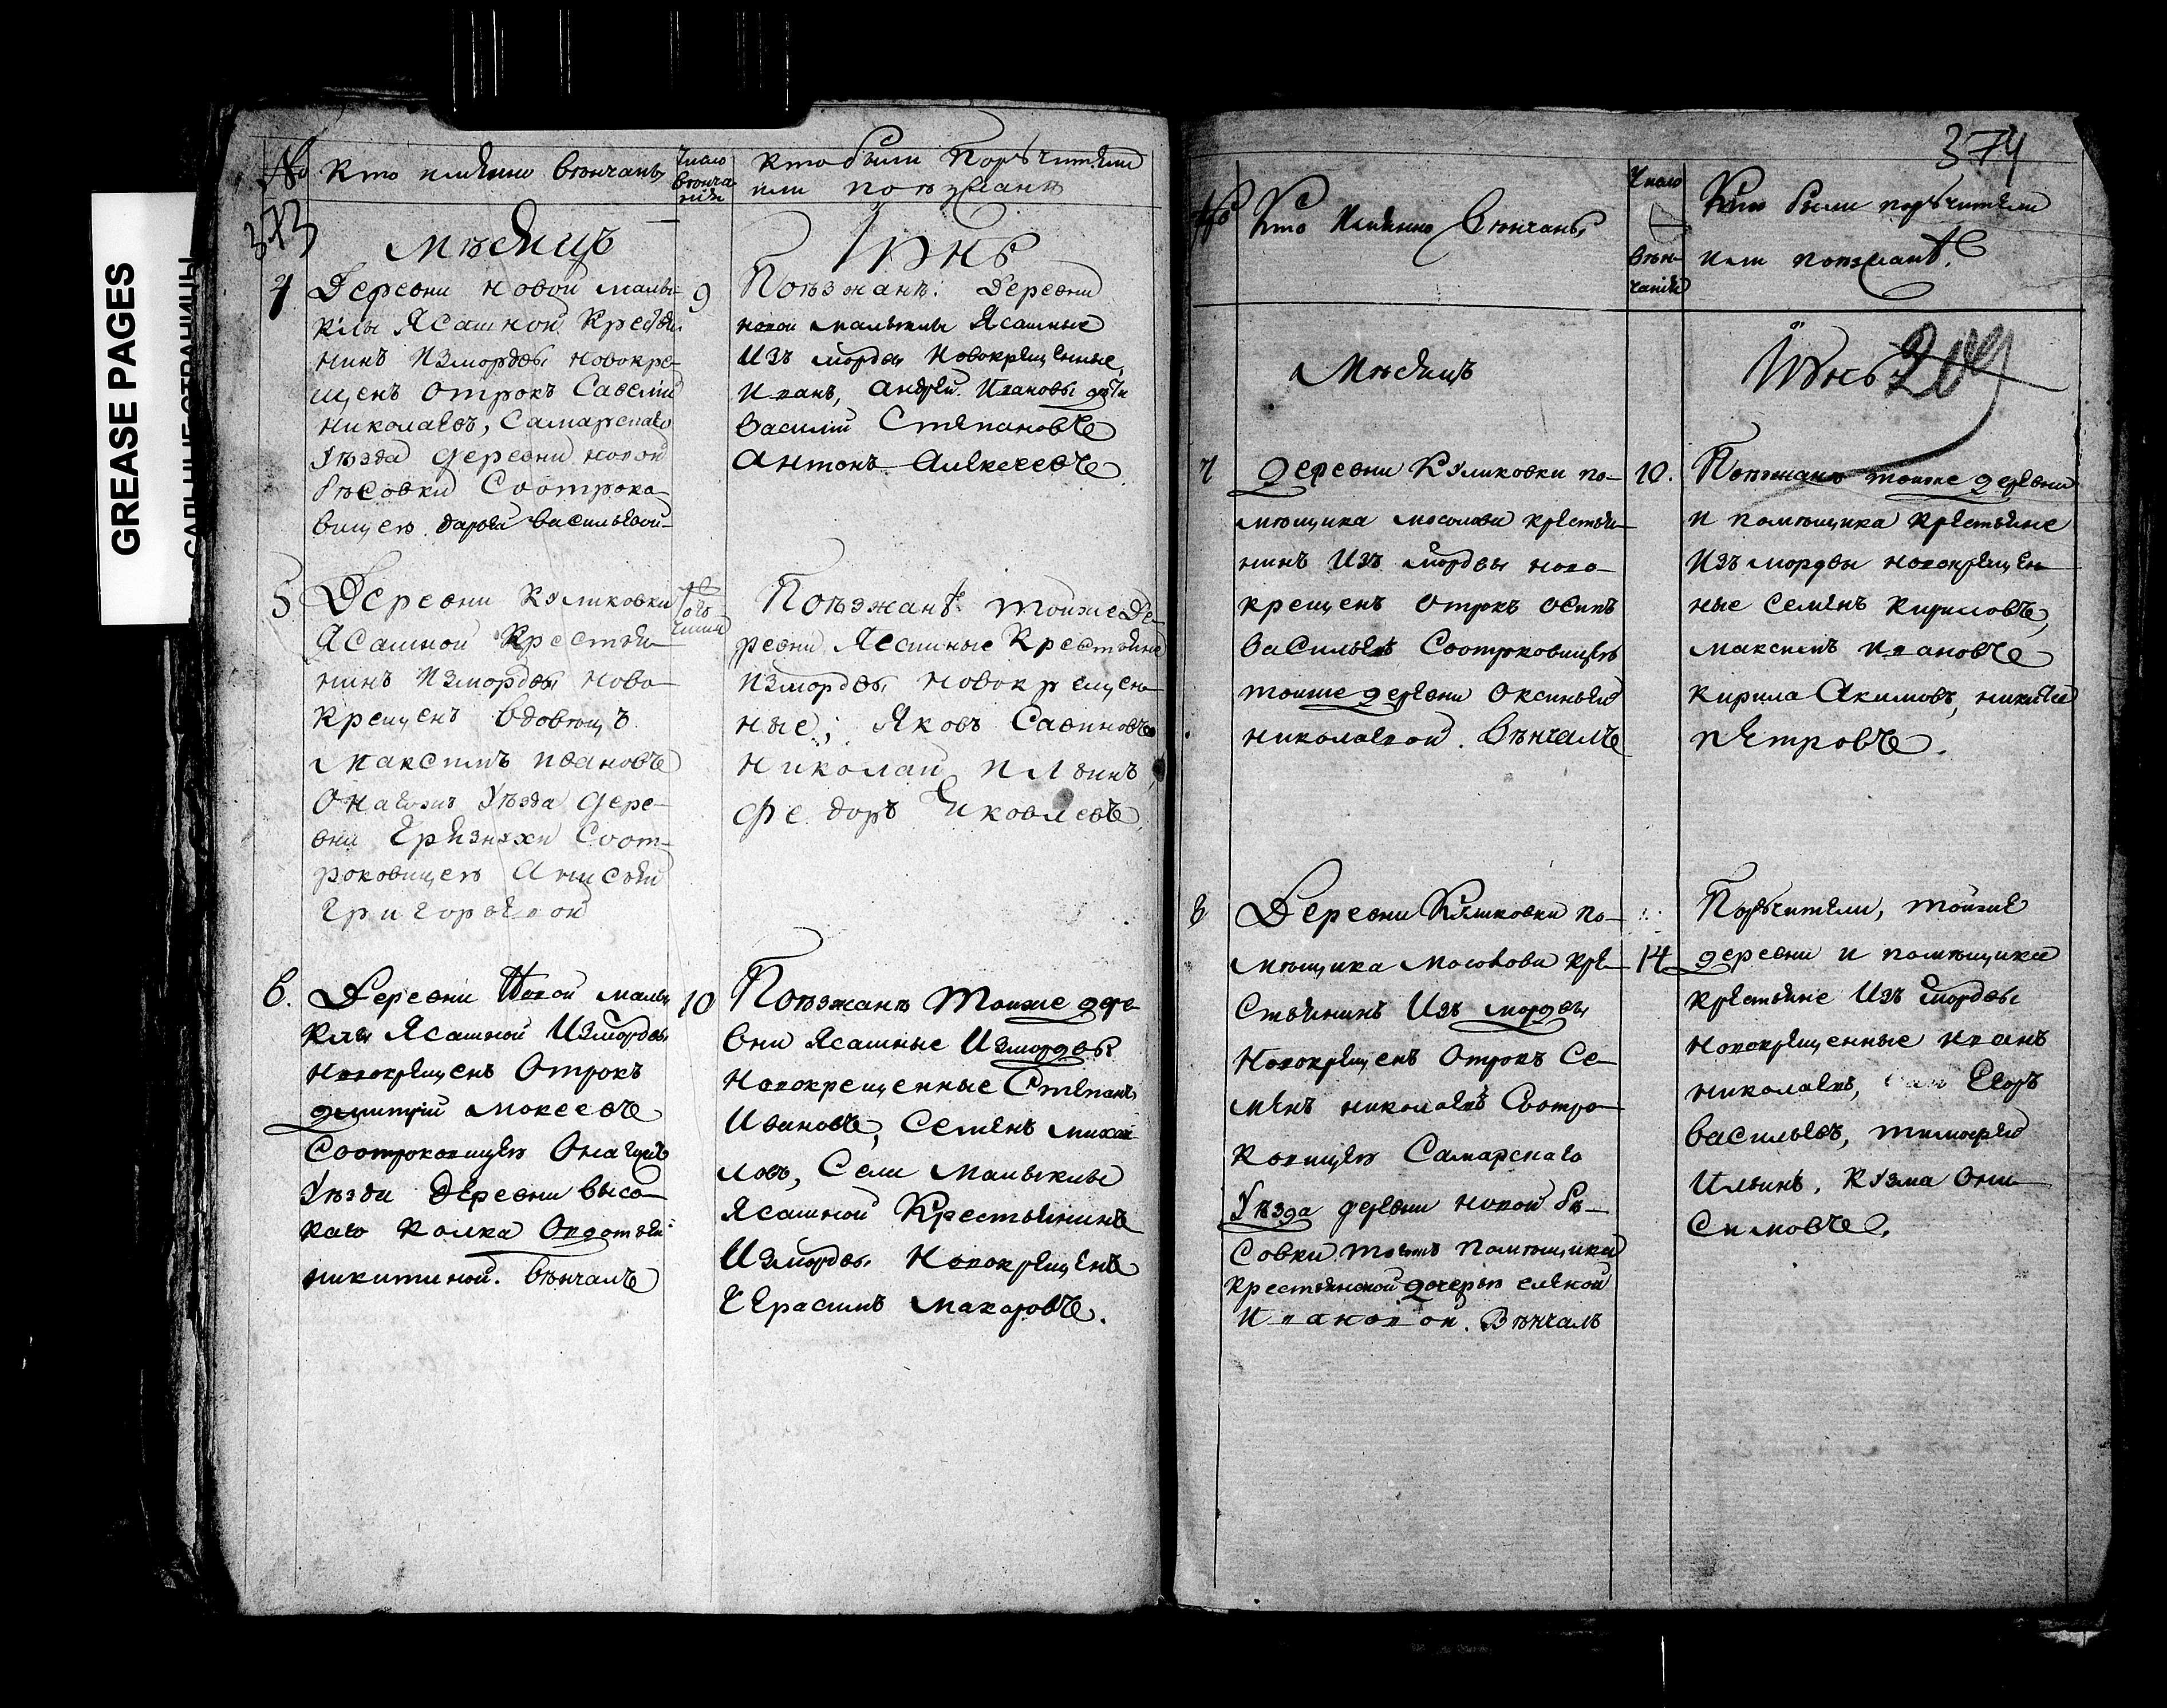 GREASE PAGES
САЛЬНЫЕ СТРАНИЦЫ
№
Кто имянно венчаны
Число венча
ния
Кто были порѣчители
или поѣзжанѣ
373
Мѣсяцъ
Іюнь
4
Деревни новой малы-
клы Ясашной Крестья-
нинъ измордвы новокре-
щенъ отрокъ Савелий
николаевъ, Самарскаго
уѣзда деревни новой
бѣсовки Соотрока-
вицею дарьей васильевой
9
Поѣзжанѣ: Деревни
новой малыклы Ясашные
Изъ мордвы Новокрещенные,
Иванъ, андрей Ивановы дѣти
Василий Степановъ
Антонъ Алексеевъ
5
Деревни Куликовки
Ясашной Крестья-
нинъ Измордвы ново-
крещенъ вдовецъ
Максимъ ивановъ
Онагожъ Уѣзда дере-
вни Грязнухи Соот-
роковицею Анисьей
Григорьевой
Поѣзжанѣ тойже де-
ревни Ясашные Крестьяне
Измордвы новокрещен-
ные; Яковъ Савиновъ
николай ильинъ,
федоръ Яковлевъ
6.
Деревни Новой малы
клы Ясашной Измордвы
новокрещенъ Отрокъ
дмитрий мокеевъ
Соотроковицею Онагожъ
Уѣзда деревни высо-
каго колка Овдотьей
никитиной. Вѣнчалъ
10
Поѣзжанѣ Тойже дере-
вни ясашные Измордвы
новокрещенные Степанъ
Ивановъ, Семенъ михаи-
ловъ, Села Малыклы
Ясашной Крестьянинъ
Измордвы Новокрещенъ
Герасимъ Макаровъ.
374
№
Кто имянно Вѣнчаны
Число
вѣн-
чания
Кто были порѣчители
или поѣзжанѣ.
Мѣсяцъ
Іюнь
209
7
деревни Куликовки по-
мѣщика мосолова крестья-
нинъ Изъ мордвы ново-
крещенъ отрокъ осипъ
васильевъ Соотроковицею
тоиже деревни Оксиньей
николаевой. Вѣнчалъ
10.
Поѣзжанѣ тоиже деревни
и помѣщика крестьяне
Изъ мордвы новокрещен-
ные семенъ кириловъ,
максимъ ивановъ
кирила Акимовъ, никита
петровъ.
8
Деревни Куликовки по-
мѣщика Мосолова кре-
стьянинъ Изъ мордвы
Новокрещенъ Отрокъ Се-
менъ николаевъ Соотро-
ковицею Самарскаго
Уѣзда деревни новой бѣ-
совки тогожъ помѣщика
крестьянской дочерью еленой
Ивановой. Вѣнчалъ
14
Порѣчители, тойже
деревни и помѣщика
крестьяне Изъ мордвы
новокрещенные иванъ
николаевъ, Егоръ
васильевъ, тимофей
Ильинъ, Кузма Они-
симовъ.